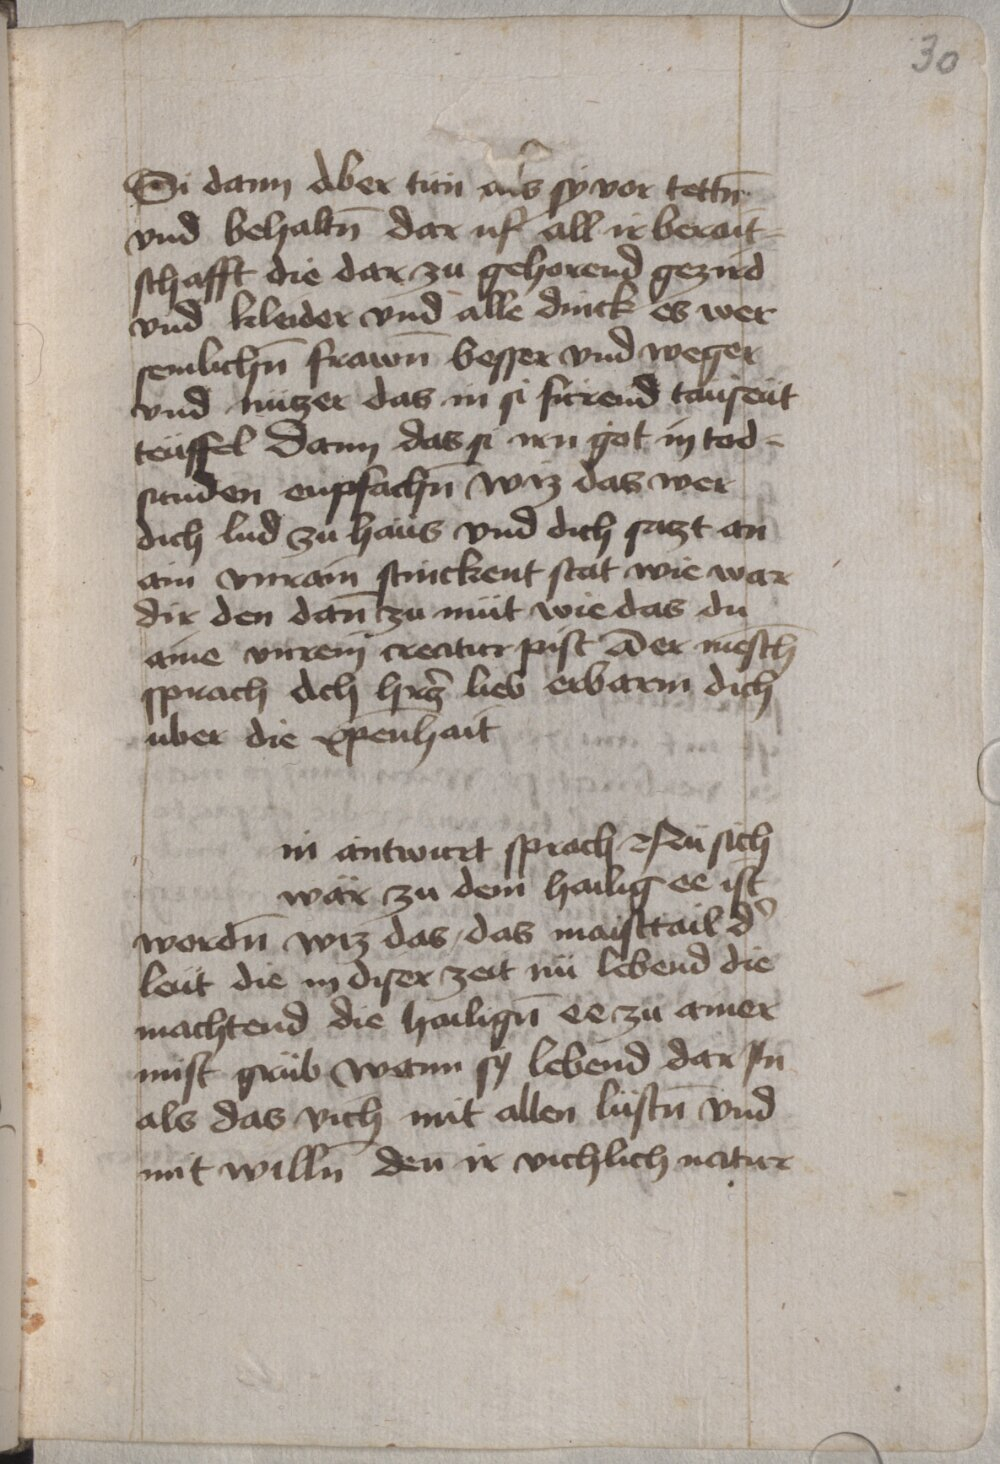 30
Si dann aber tün als sy vor tettn̄
vnd behaltn̄ dar uf all ir berait-
schafft die dar zu gehorend gezird
vnd kleider vnd alle dinck es wer
semlichn̄ frawn̄ besser vnd weger
vnd nützer das in si fürend tausent
teüffel Dann das si irn got in tod-
sünden enpfachn̄ Wiz das wer
dich lüd zu haüs vnd dich satzt an
ain vnrain stinckent stat wie war
dir den dan̄ zu müt wie das du
aine vnrein creatur pist Der mēsch
sprach Ach hrꝫ lieb erbarm dich
uber die xp̄enhait
in antwurt sprach Nu sich
wär zu dem hailig ee ist
wordn̄ wiz das das maisttail d'
leüt die in diser zeit nü lebend die
machtend die hailign̄ ee zu ainer
mist grüb wann sy lebend dar in
als das vich mit allen lüstn̄ vnd
mit willn̄ den ir vichlich natur